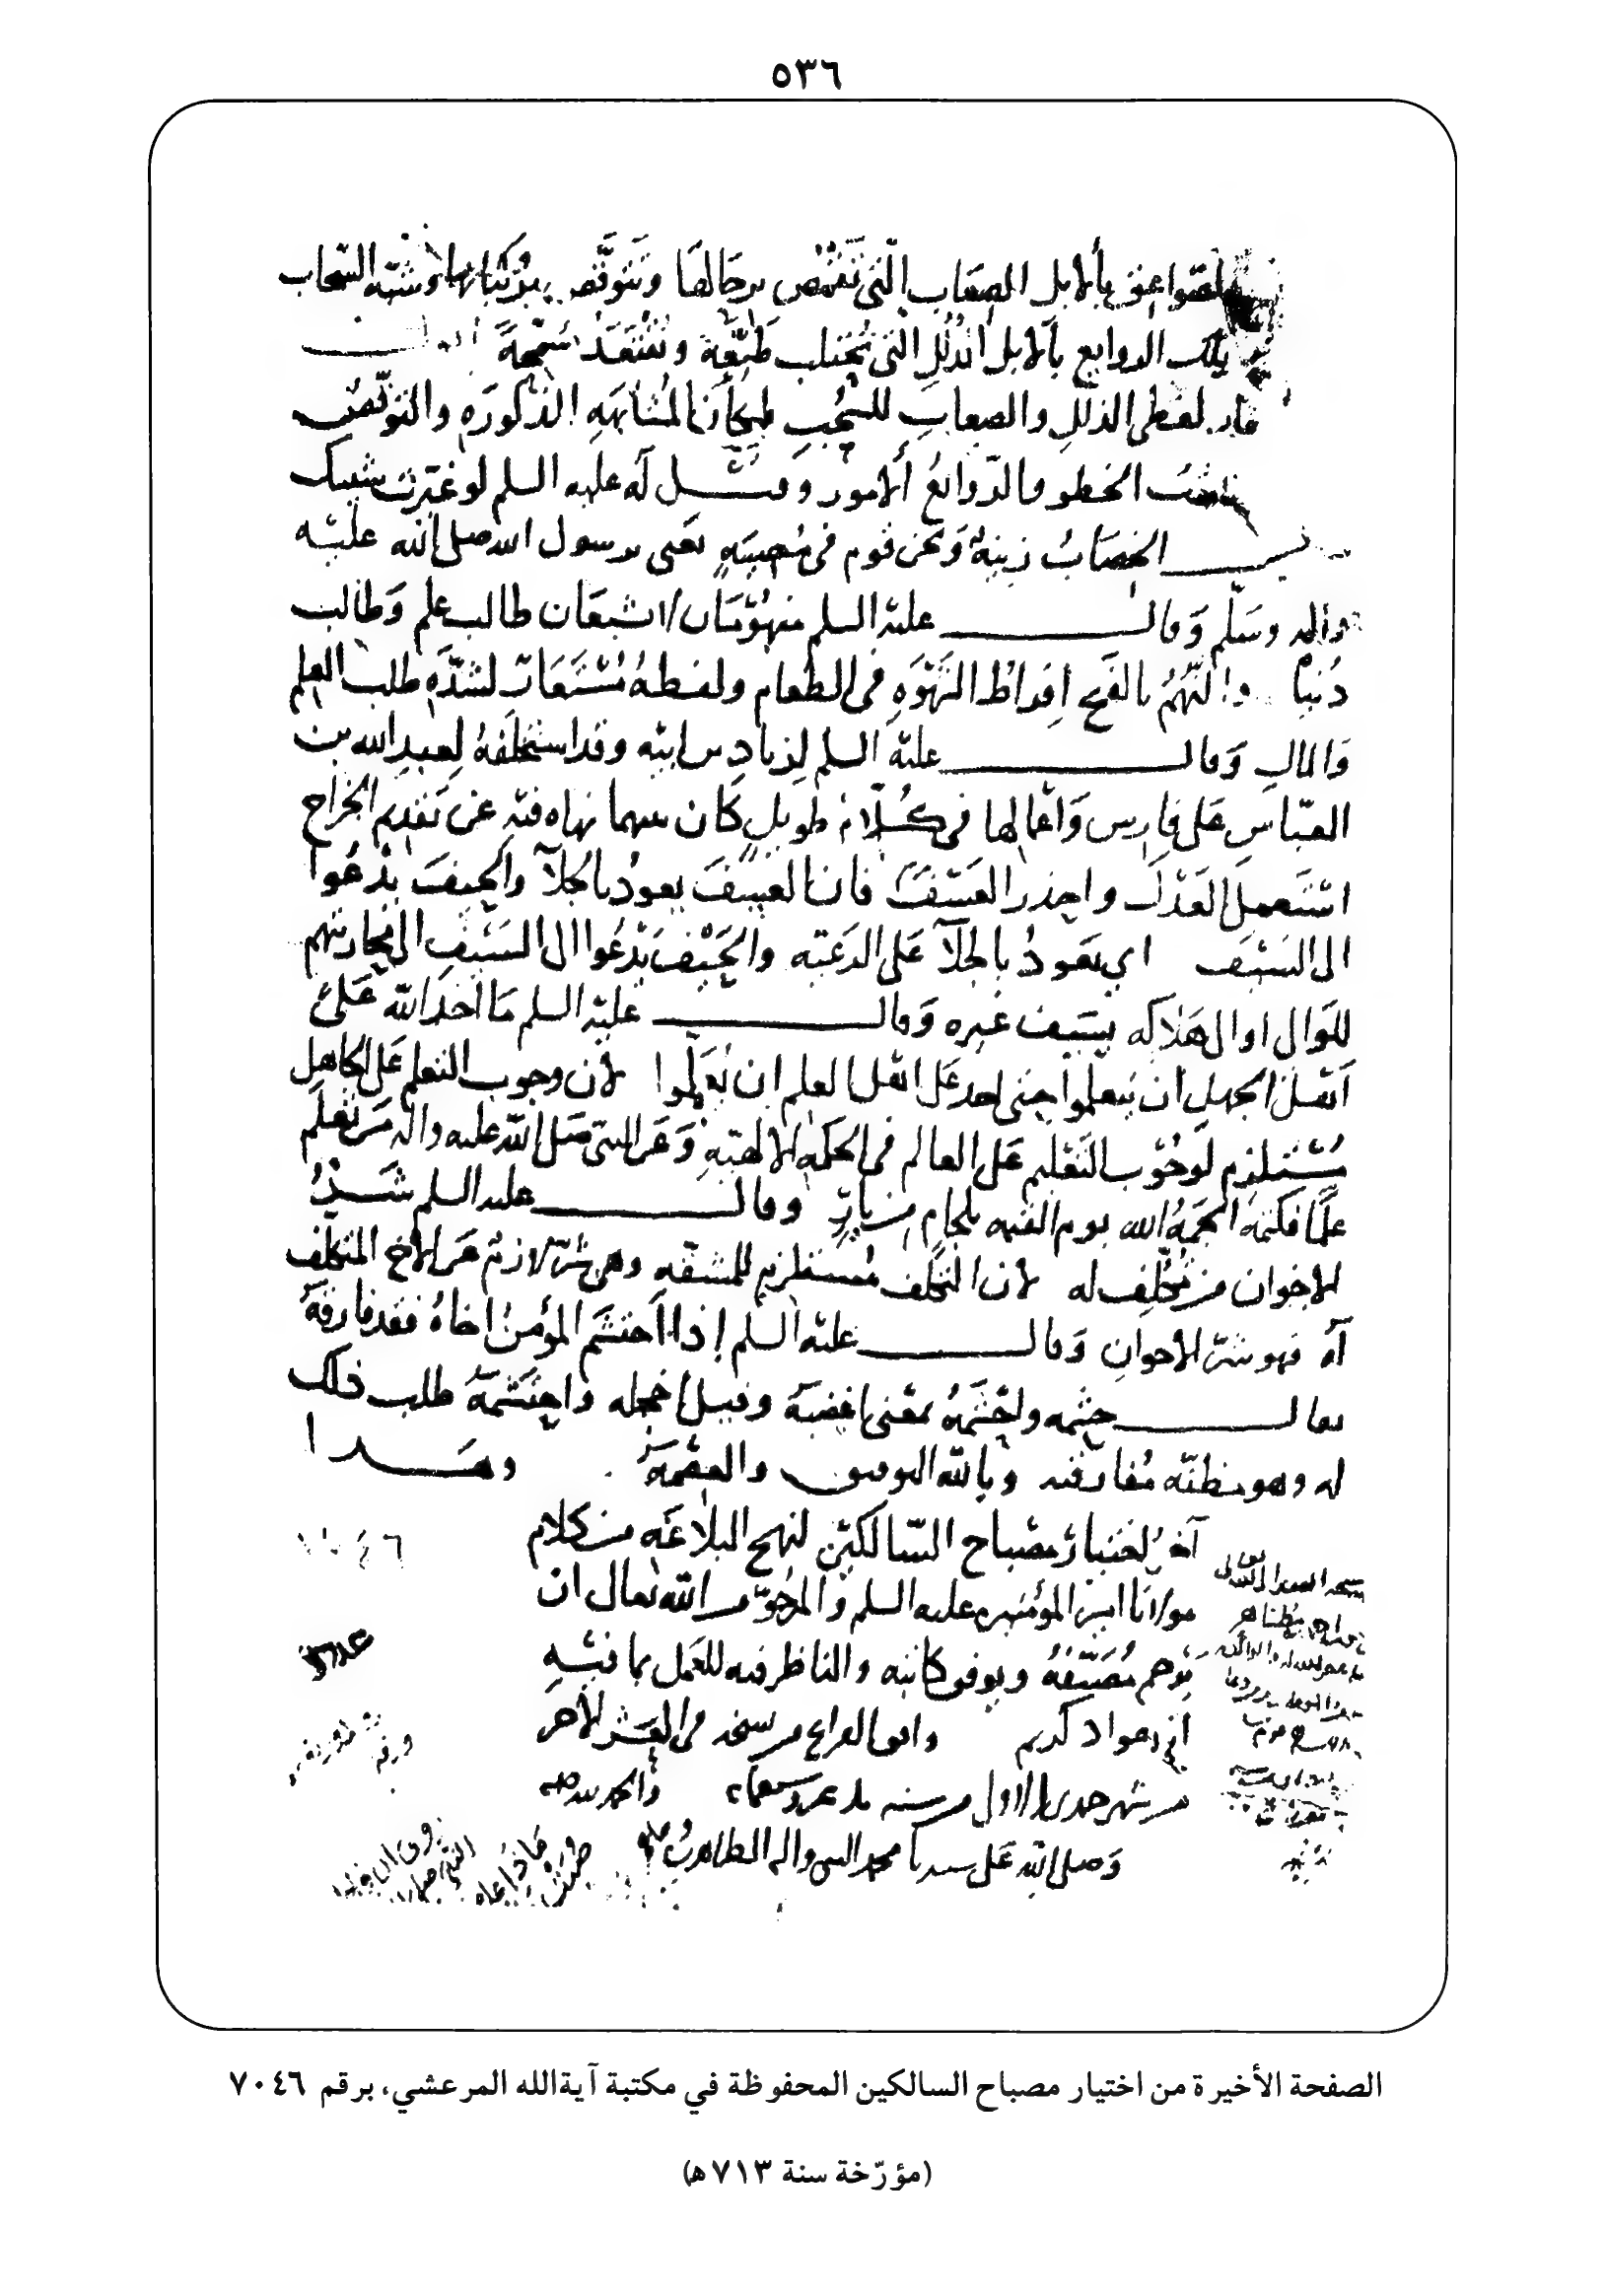 ٥٣٦
والصواعق بالابل الصعاب التي تقمص برحالها وتتوقص بركبانها وشبه السحاب
تلك الروايع بالابل الذلل التي تحتلب طيعة وتقتعد سمحة
لفظى الذلل والصعاب للسحب المشابهه المذكوره والتوقص
الخطو والروائع الامور وقيل له عليه السلم لو غيرت شيبك
الخضاب زينة ونحن قوم في مصيبه يعنى برسول الله صلى الله عليه
واله وسلم وقال عليه السلم منهومان لا شبعان طالب علم وطالب
دنيا والنهم بالفتح افراط الشهوه في الطعام ولفظه مستعار لشده طلب العلم
والمال وقال عليه السلم لزياد بن ابيه وقد استخلفه لعبد الله بن
العباس على فارس واعمالها في كلام طويل كان بينهما نهاه فيه عن تقديم الخراج
استعمل العدل واحذر العسف فان العسف يعود بالجلآ والحيف يدعوا
الى السيف اي يعود بالجلآ على الرعيه والحيف يدعوا الى السيف الى محاربتهم
للوالى او الى هلاكه بسيف غيره وقال عليه السلم ما اخذ الله على
اهل الجهل ان يتعلموا حتى اخذ على اهل العلم ان يعلموا لان وجوب التعلم على الجاهل
مستلزم لوجوب التعليم على العالم في الحكمه الالهيه وعن النبي صلى الله عليه واله من تعلم
علما فكتمه الجمه الله يوم القيمه بلجام من نار وقال عليه السلم شر
الاخوان من تكلف له لان التكلف مستلزم للمشقه وهى شر لازم عن الاخ المتكلف
له فهو شر الاخوان وقال عليه السلم إذا احتشم المؤمن اخاه فقد فارقه
يقال حشمه واحشمه بمعنى اغضبه وقيل اخجله واحتشمه طلب ذلك
له وهو مظنه مفارقته وبالله التوفيق والعصمة وهذا
آخر اختيار مصباح السالكين لنهج البلاغه من كلام
مولانا امير المؤمنين عليه السلم والمرجو من الله تعالى ان
يرحم مصنفه ويوفق كاتبه والناظر فيه للعمل بما فيه
انه جواد كريم واتفق الفراغ من نسخه في العشر الاخر
من شهر جمدى الاول من سنه ثلث عشر وسبعمائه والحمد لله
وصلى الله على سيدنا محمد النبي واله الطاهرين
الصفحة الأخيرة من اختيار مصباح السالكين المحفوظة في مكتبة آيةالله المرعشي، برقم ٧٠٤٦
(مؤرّخة سنة ٧١٣ھ)